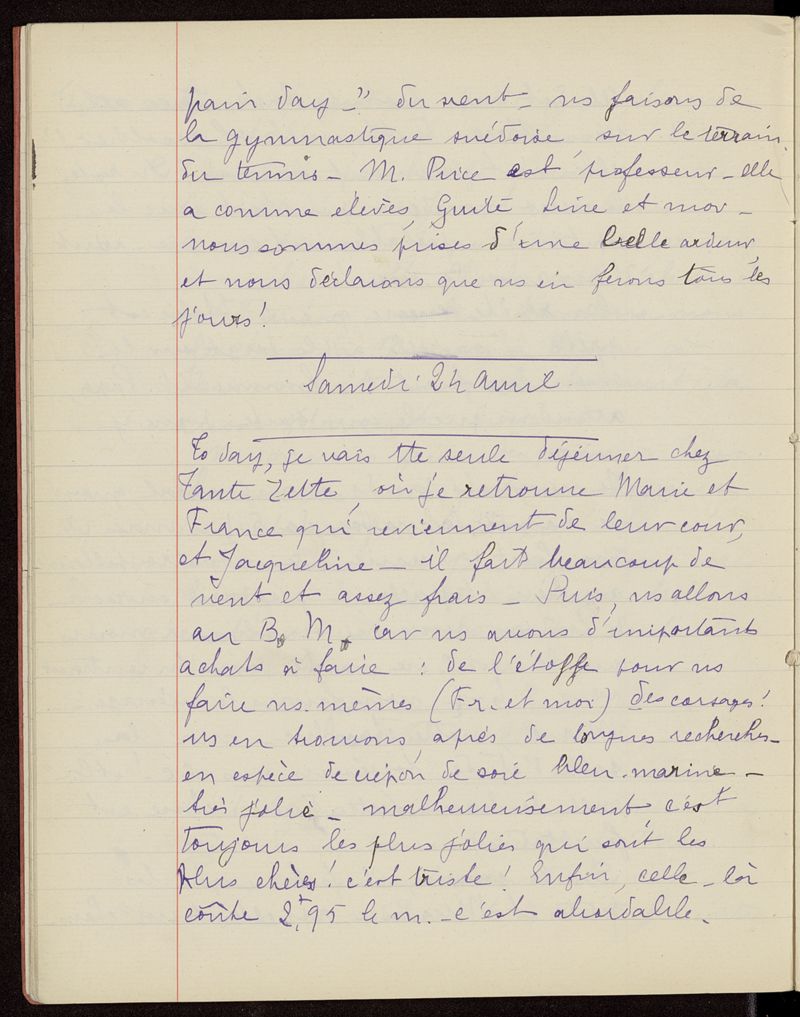 pain day –" du vent – ns faisons de
la gymnastique suédoise, sur le terrain
du tennis – M. Price est professeur – elle
a comme élèves, Guite, Line et moi –
nous sommes prises d'une belle ardeur,
et nous déclarons que ns en ferons tous les
jours!
Samedi 24 avril
To day, je vais tte seule déjeuner chez
Tante Zette, où je retrouve Marie et
France qui reviennent de leur cour,
et Jacqueline – il fait beaucoup de
vent et assez frais – Puis, ns allons
au B. M. car ns avons d'importants
achats à faire : de l'étoffe pour ns
faire ns. mêmes (Fr. et moi) des corsages!
ns en trouvons, après de longues recherches –
en espèce de crépon de soie bleu-marine –
très jolie – malheureusement, c'est
toujours les plus jolies qui sont les
plus chères! c'est triste! Enfin, celle-là
coûte 2,f95 le m. – c'est abordable.